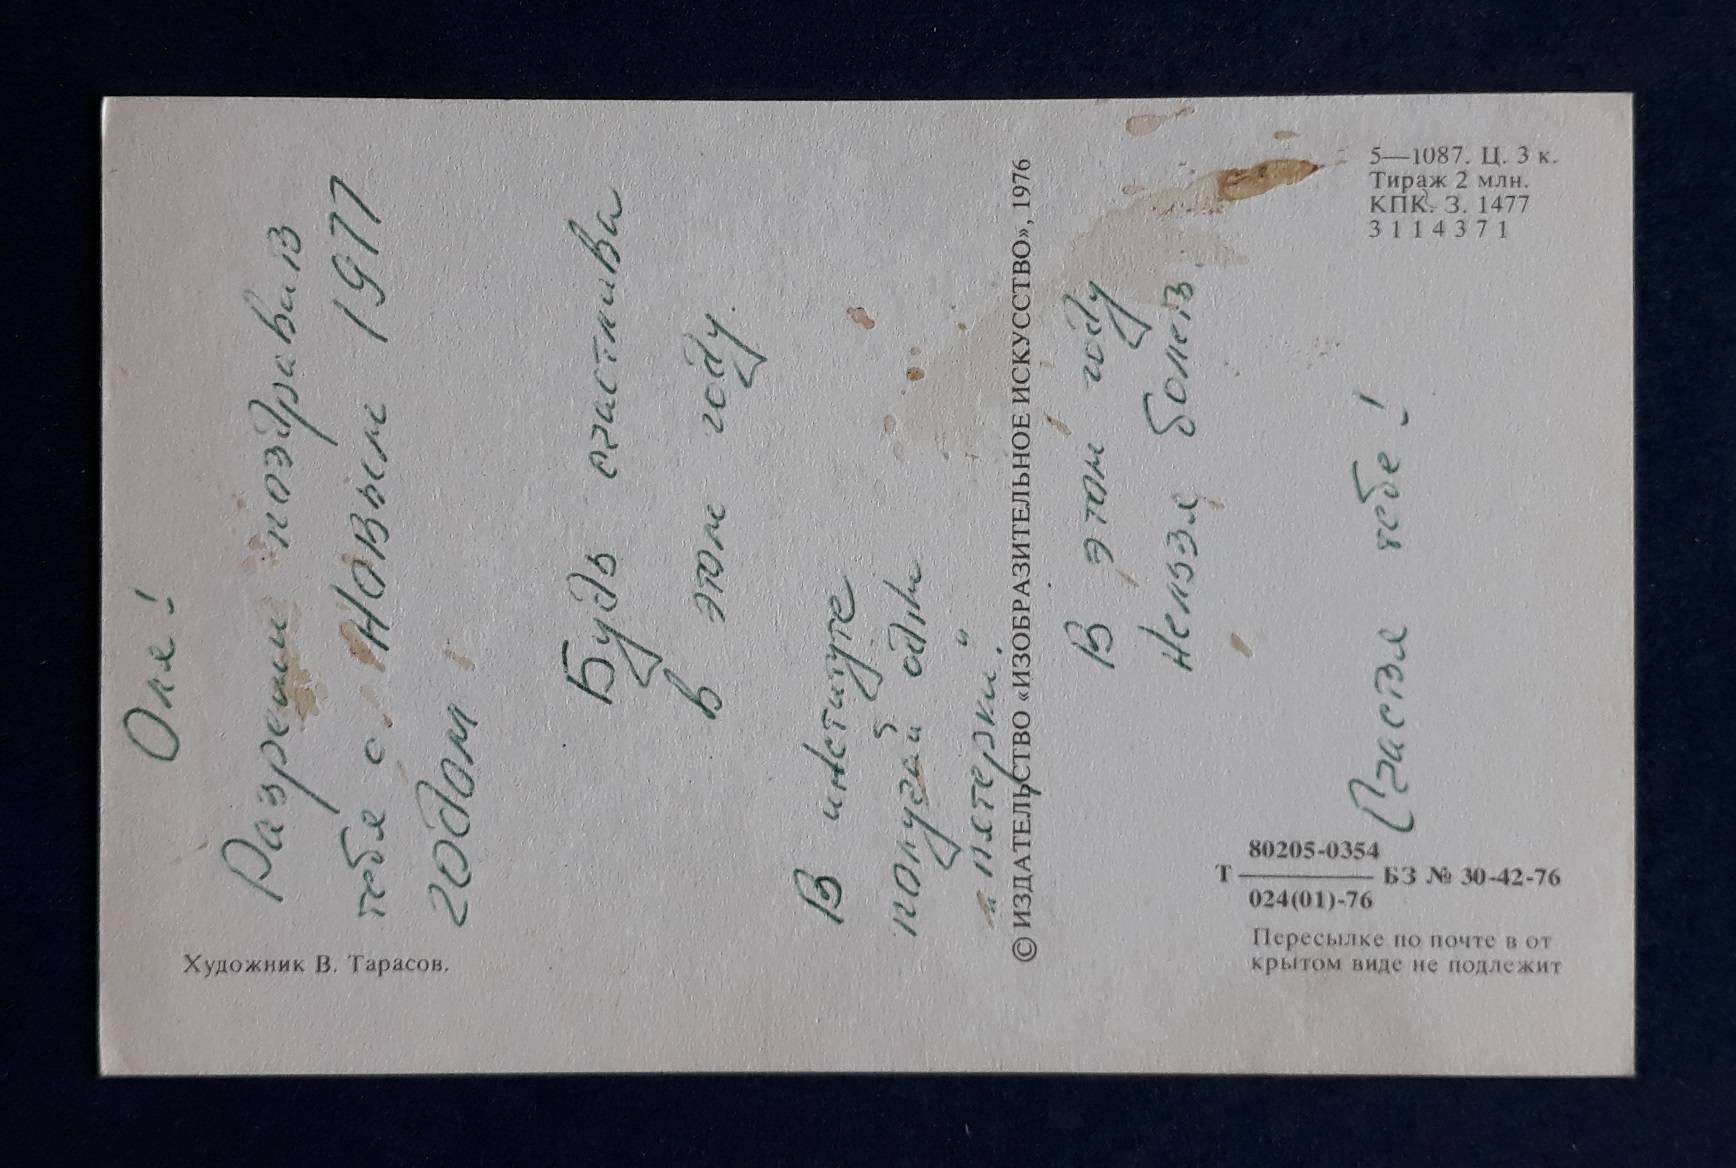 Оля!
Разреши поздравить
тебя с Новым 1977
годом!
Будь счастлива
в этом году.
В институте
получай одни
„пятерки“.
В этом году
нельзя болеть.
Счастья тебе!
Художник В. Тарасов.
© ИЗДАТЕЛЬСТВО «ИЗОБРАЗИТЕЛЬНОЕ ИСКУССТВО», 1976
5—1087. Ц. 3 к.
Тираж 2 млн.
КПК. З. 1477
3114371
80205-0354
Т ——— БЗ № 30-42-76
024(01)-76
Пересылке по почте в от
крытом виде не подлежит